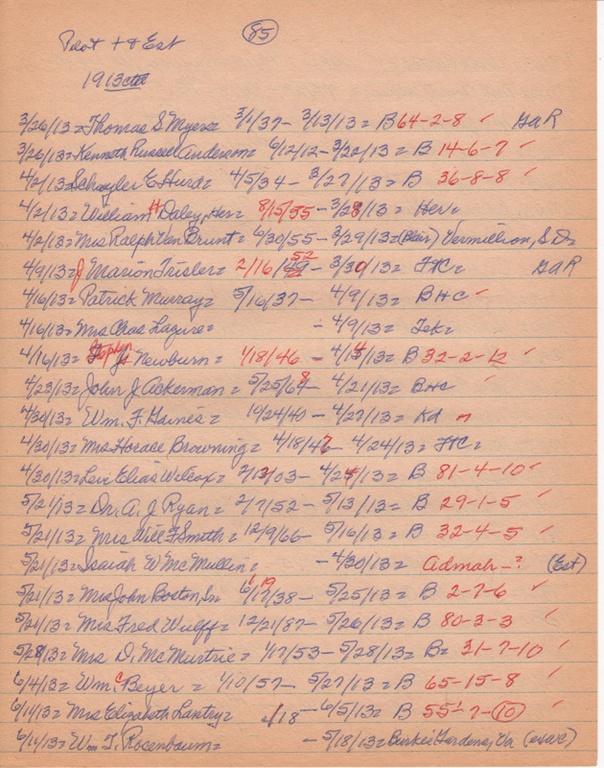 85
Pilot + & Est
1913 ctd
3/26/13= Thomas S Myers= 3/1/37- 3/13/13= B 64-2-8 ✓ GaR
3/26/13= Kenneth Russell Anderson= 6/12/12-3/22/13= B 14-6-7 ✓
4/2/13= Schuyler E Hurd= 4/5/34 - 3/27/13= B 36-8-8 ✓
4/2/13= William H Daley, Her= 8/15/55 -3/28/13= Her=
4/2/13= Mrs Ralph Van Brunt= 6/30/55 -3/29/13= (Blair) Vermillion, S.D=
4/9/13= J Marion Trisler= 2/16/52 - 3/30/13= FtC= GaR
4/16/13= Patrick Murray= 5/16/37- 4/9/13= BHC ✓
4/16/13= Mrs Chas Lagure= - 4/9/13= Tek=
4/16/13= Newburn= 1/18/46 - 4/14/13= B 32-2-12 ✓
4/23/13= John J Ackerman= 5/25/68 - 4/21/13= BHC
4/30/13= Wm. F. Gaines= 10/24/40 - 4/27/13= Kd
4/30/13= Mrs Horace Browning= 4/18/47 - 4/24/13= FtC=
4/30/13= Levi Elias Wilcox= 2/12/03- 4/24/13= B 81-4-10 ✓
5/21/13= Dr. A. J. Ryan= 2/7/52- 5/13/13= B 29-1-5 ✓
5/21/13= Mrs Will F Smith= 12/9/66- 5/16/13= B 32-4-5 ✓
5/21/13= Isaiah W McMullin= -4/30/13= Admah -? (Est)
5/21/13= Mrs John Boston, Sr= 6/19/38- 5/25/13= B 2-7-6 ✓
5/21/13= Mrs Fred Wulff= 12/21/87- 5/26/13= B 80-3-3 ✓
5/28/13= Mrs D. McMurtrie= 1/17/53- 5/28/13= B= 31-7-10 ✓
6/4/13= Wm. C Beyer= 1/10/57- 5/27/13= B 65-15-8 ✓
6/14/13= Mrs Elizabeth Lantry= 1/18 -6/5/13= B 55-7-10 ✓
6/14/13= Wm T. Rosenbaum= -5/18/13= Burkes Gardens, Va (evac)